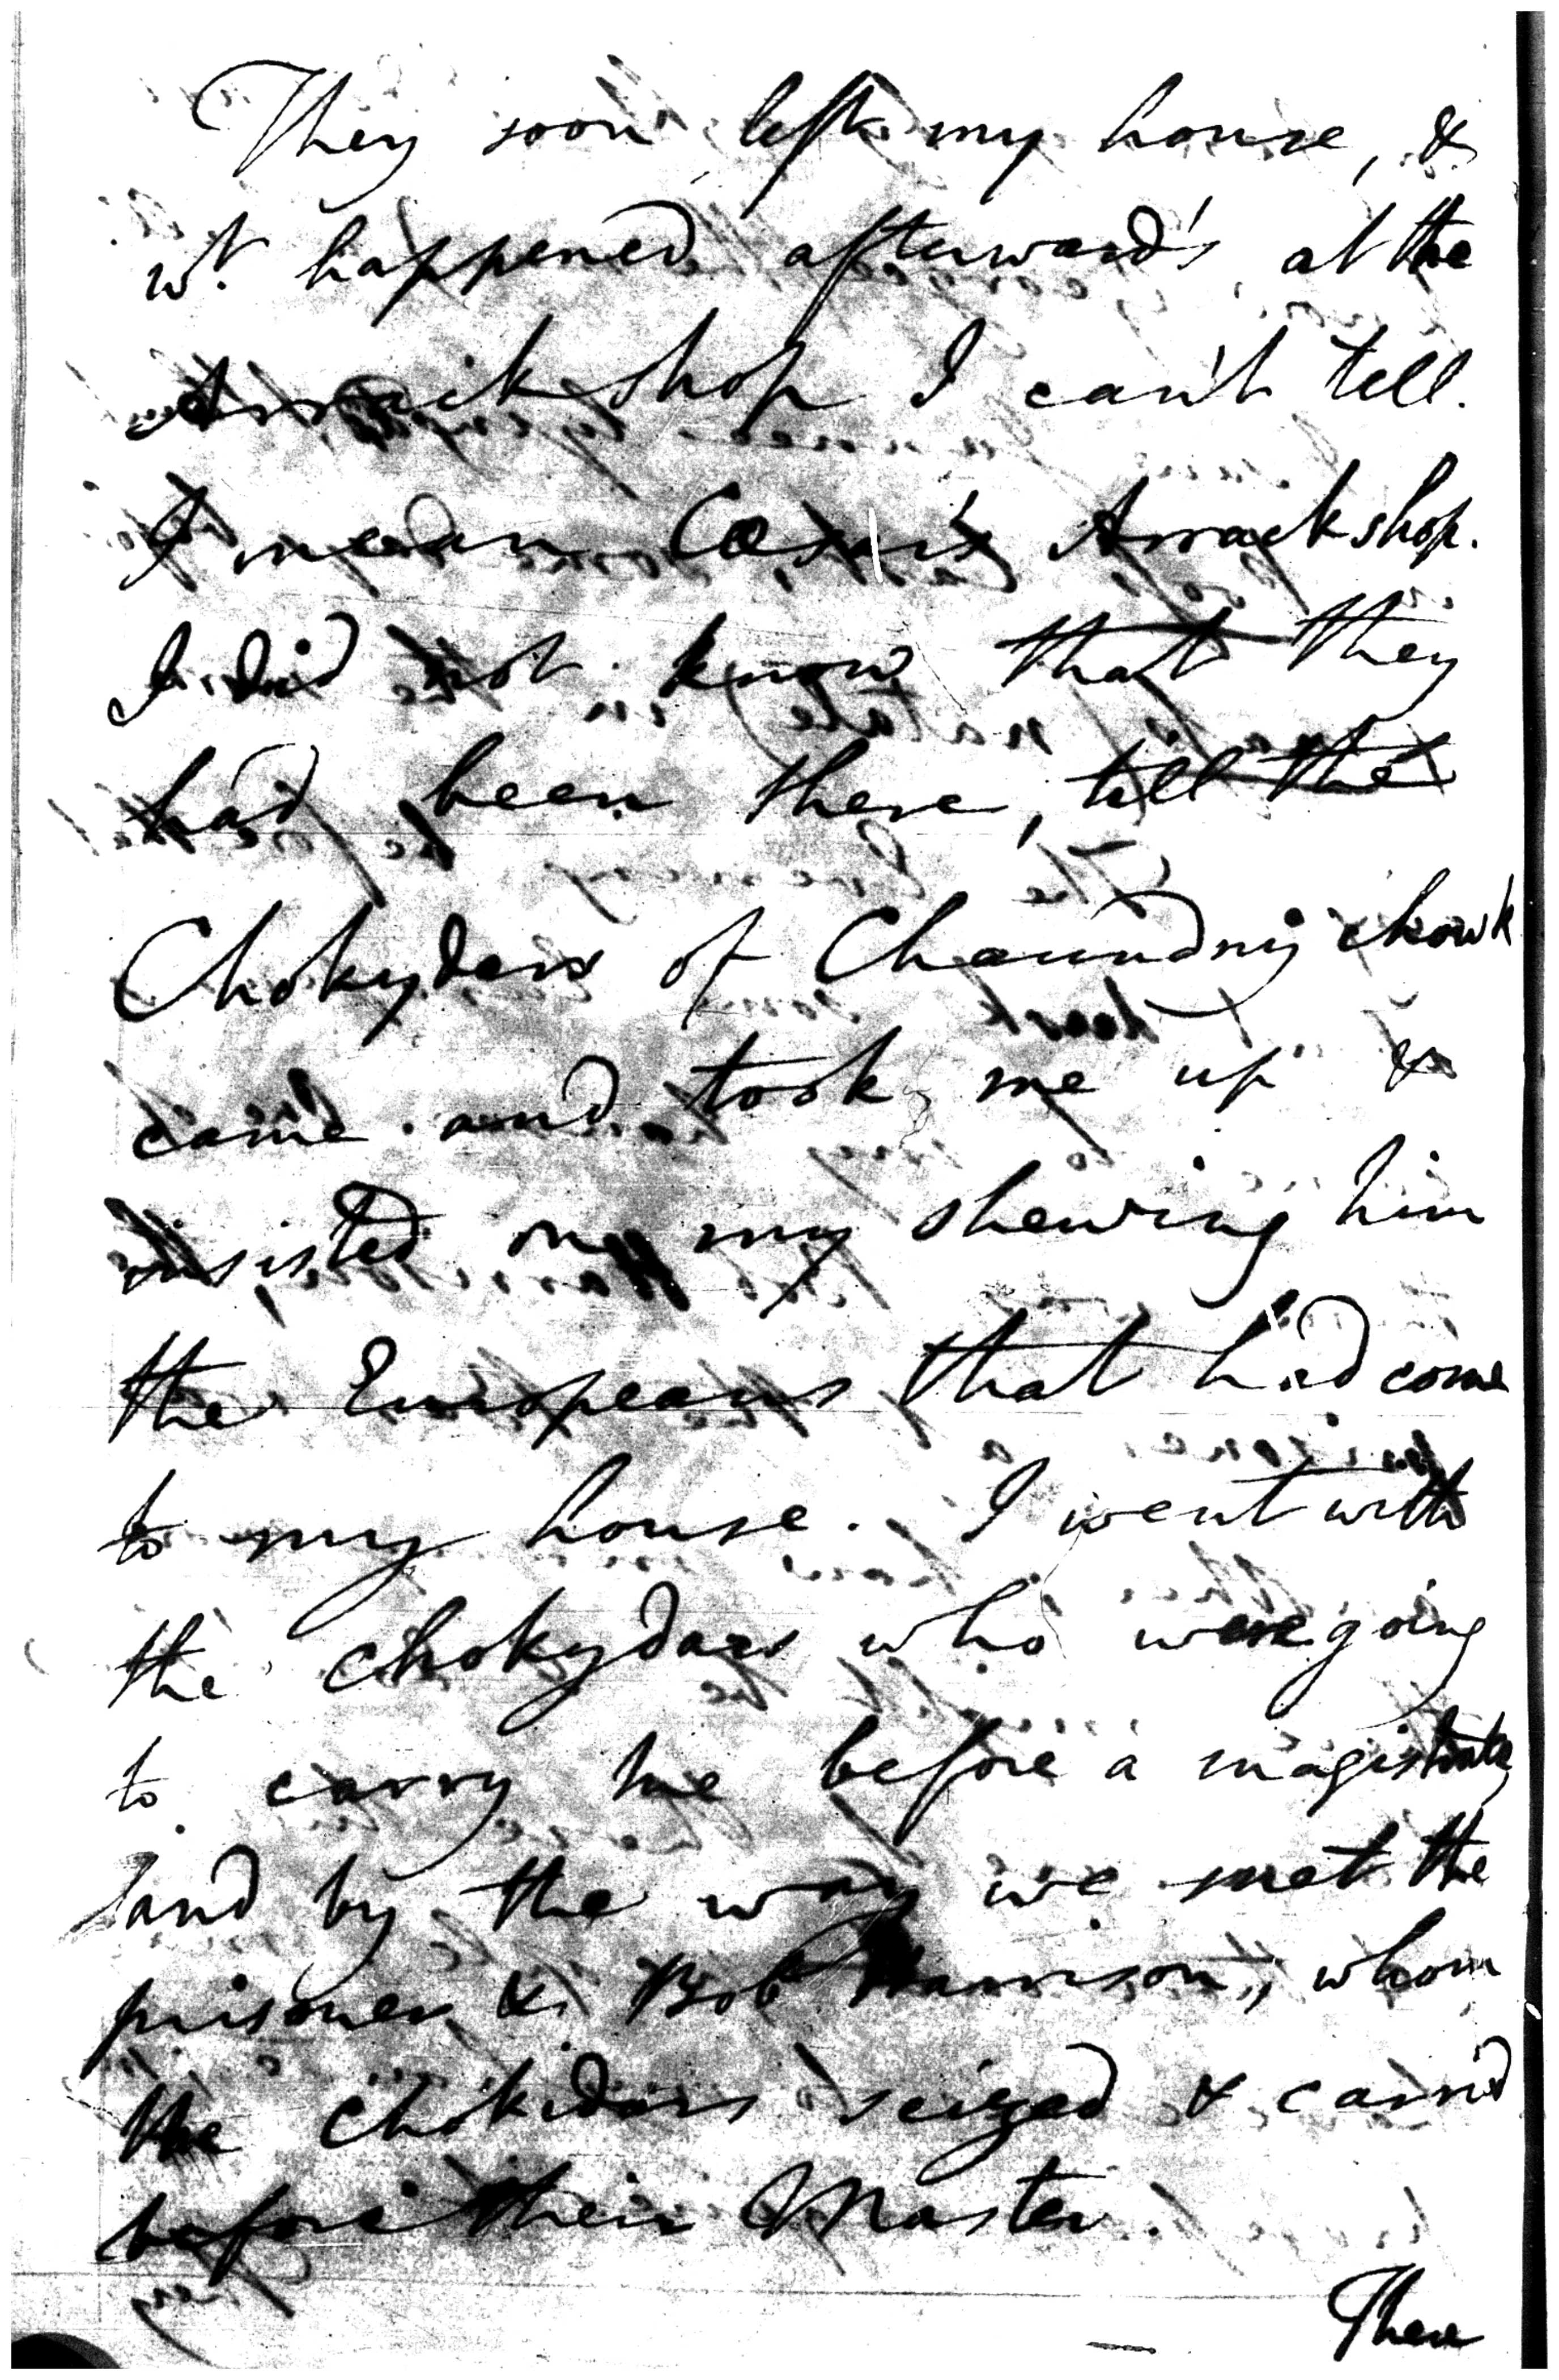 They soon left my house, &
wt. happened afterward's at the
Arrack shop I can't tell.
I mean Arrack shop.
I did not know that they
had been there, till the
Chokydars of Chaundny chowk
came and took me up &
insisted on my shewing him
the Europeans that had come
to my house. I went with
the Chokydars who were going
to carry me before a magistrate
and by the way we met the
prisoner & Bob Harrison, whom
the Chokidars seized & carrid
before their Master.
There